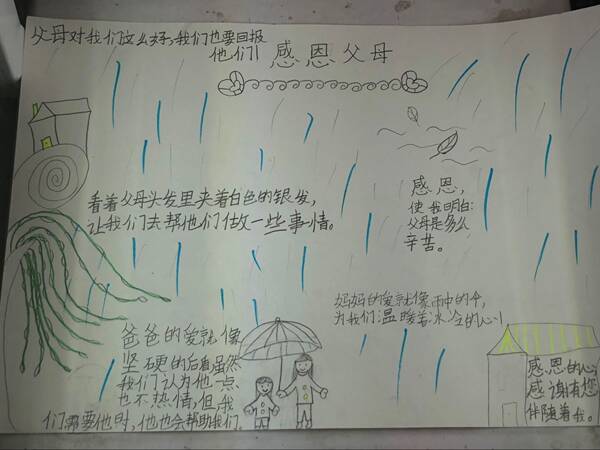 父母对我们这么好，我们也要回报
他们！
感恩父母
看着父母头发里夹着白色的银发，
让我们去帮他们做一些事情。
感恩，
使我明白：
父母是多么
辛苦。
妈妈的爱就像雨中的伞，
为我们温暖着冰冷的心
爸爸的爱就像
坚硬的后盾虽然
我们认为他一点
也不热情，但我
们需要他时，他也会帮助我们。
感恩的心
感谢有您
伴随着我。